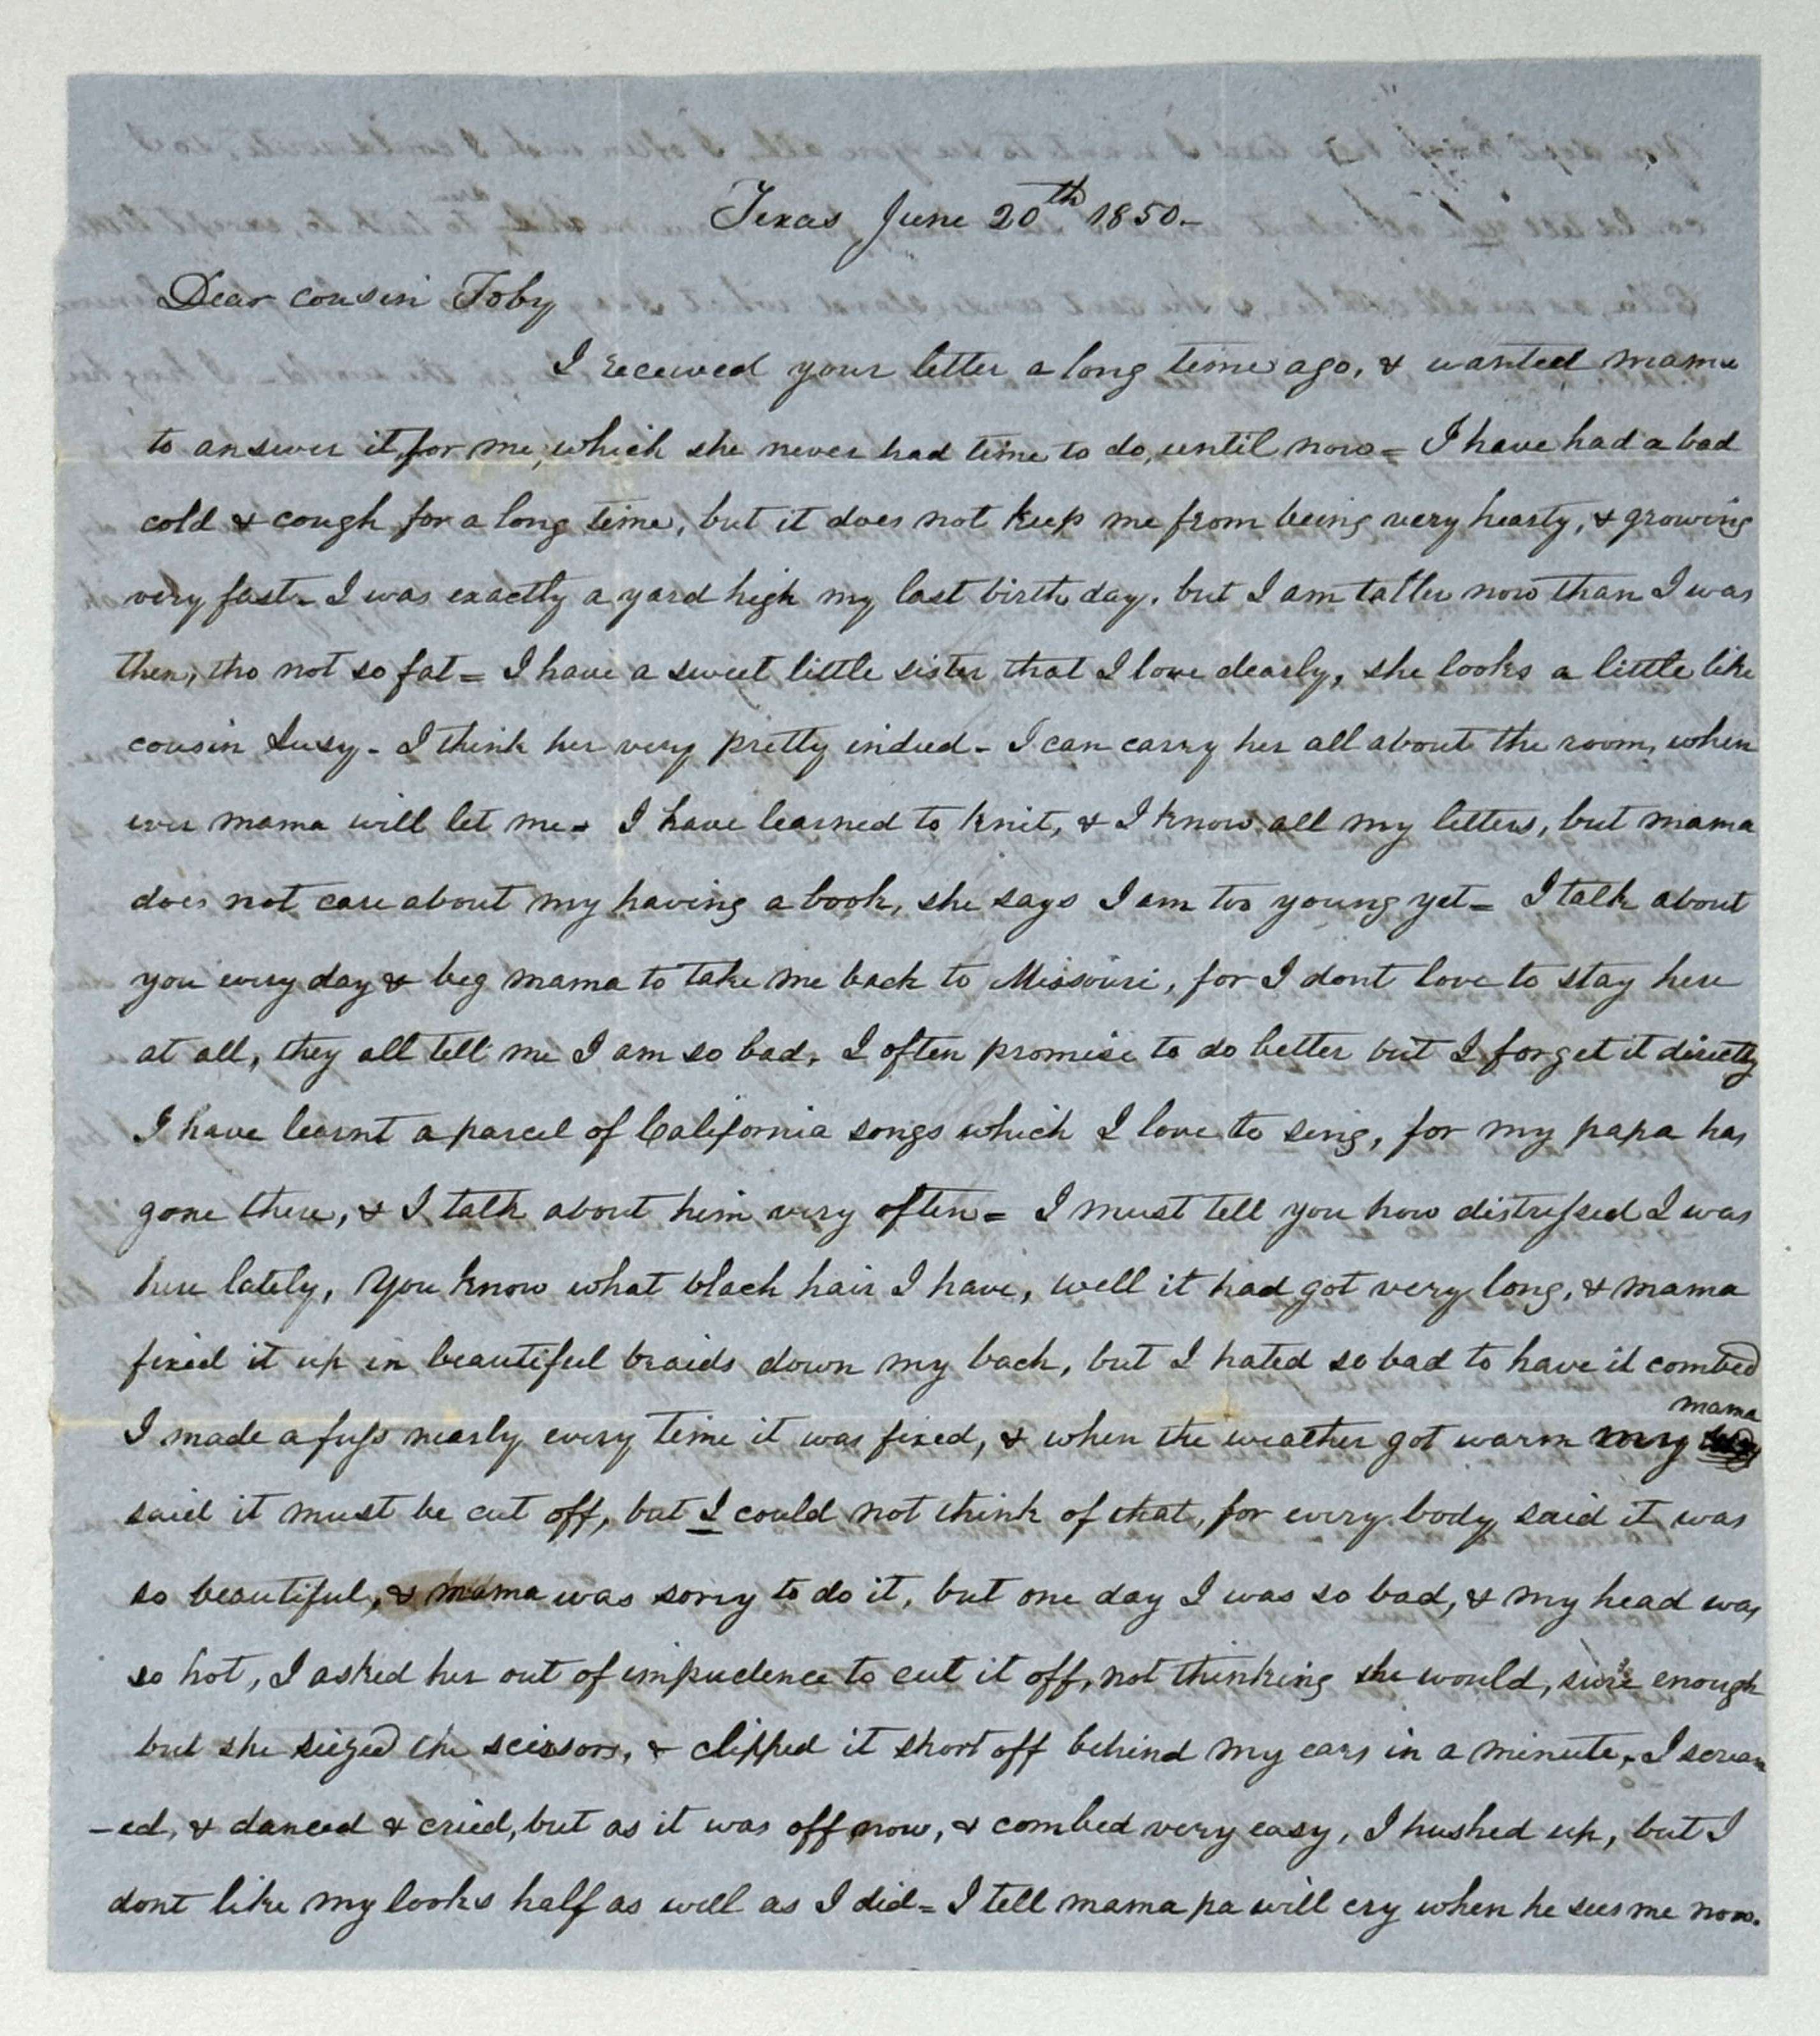 Texas June 20th 1850-
Dear cousin Toby
I received your letter a long time ago, & wanted mama
to answer it, for me, which she never had time to do, until now = I have had a bad
cold & cough for a long time, but it does not keep me from being very hearty, & growing
very fast - I was exactly a yard high my last birth day, but I am taller now than I was
then, tho not so fat = I have a sweet little sister that I love dearly, she looks a little like
cousin Susy - I think her very pretty indeed - I can carry her all about the room, when
ever mama will let me - I have learned to knit, & I know all my letters, but mama
does not care about my having a book, she says I am too young yet = I talk about
you every day & beg mama to take me back to Missouri, for I dont love to stay here
at all, they all tell me I am so bad, I often promise to do better but I forget it directly
I have learnt a parcel of California songs which I love to sing, for my papa has
gone there, & I talk about him very often = I must tell you how distressed I was
here lately, You know what black hair I have, well it had got very long, & mama
fixed it up in beautiful braids down my back, but I hated so bad to have it combed
mama
I made a fuss nearly every time it was fixed, & when the weather got warm my
said it must be cut off, but I could not think of that, for every body said it was
so beautiful, & mama was sorry to do it, but one day I was so bad, & my head was
so hot, I asked her out of impudence to cut it off, not thinking she would, sure enough
but she seized the scissors, & clipped it short off behind my ears in a minute, - I scream
-ed, & danced & cried, but as it was off now, & combed very easy, I hushed up, but I
dont like my looks half as well as I did = I tell mama pa will cry when he sees me now.